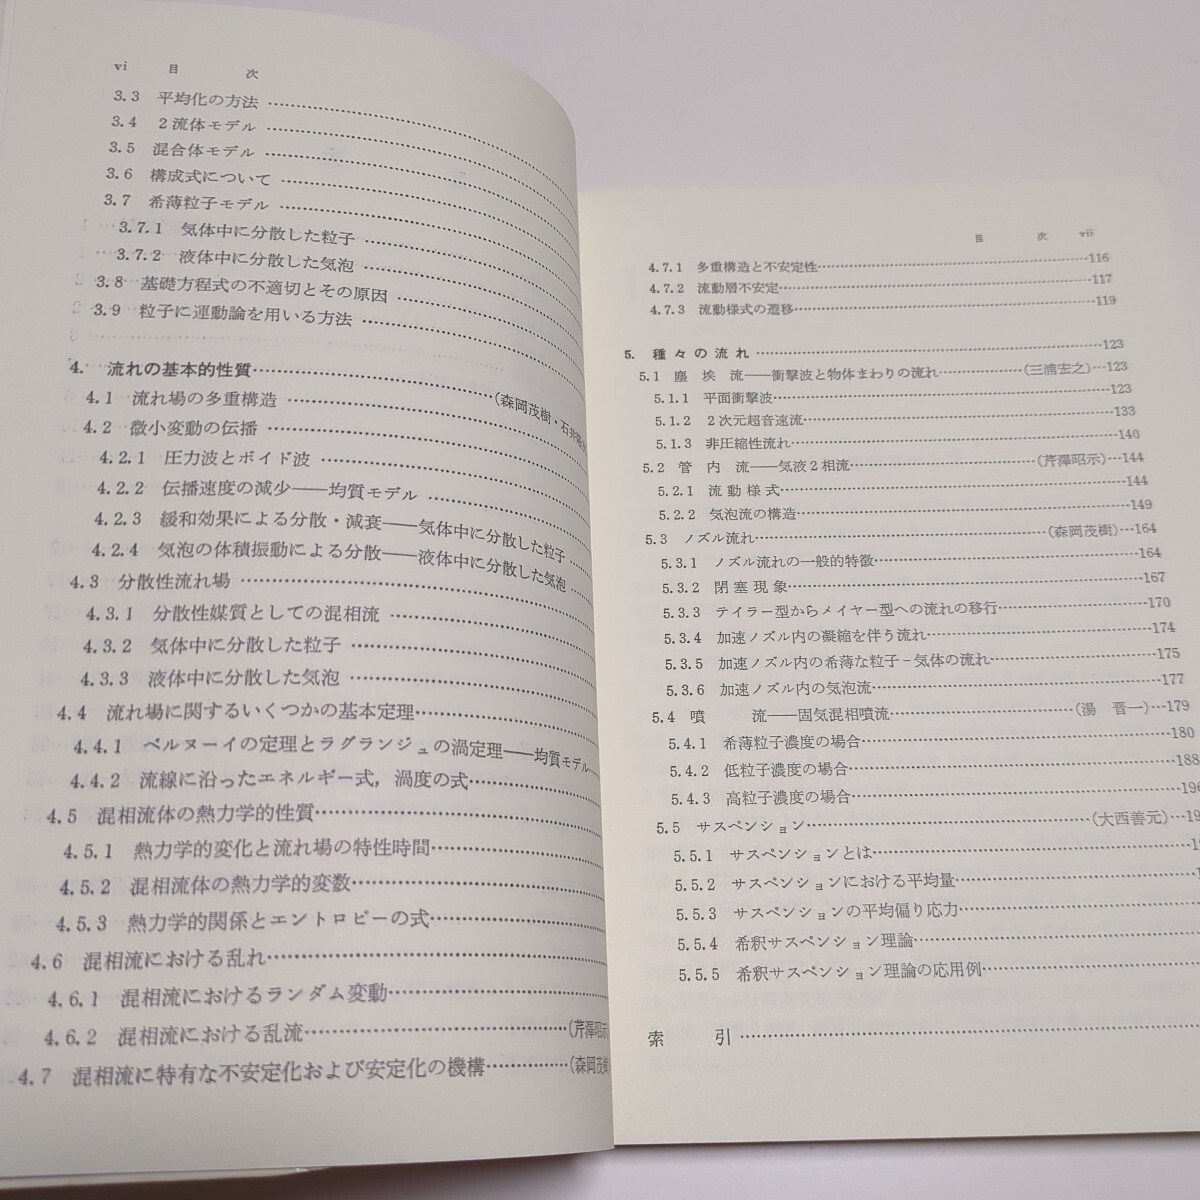 vi 目 次
3.3 平均化の方法
3.4 2流体モデル
3.5 混合体モデル
3.6 構成式について
3.7 希薄粒子モデル
3.7.1 気体中に分散した粒子
3.7.2 液体中に分散した気泡
3.8 基礎方程式の不適切とその原因
3.9 粒子に運動論を用いる方法
4. 流れの基本的性質 (森岡茂樹・石井
4.1 流れ場の多重構造
4.2 微小変動の伝播
4.2.1 圧力波とボイド波
4.2.2 伝播速度の減少——均質モデル
4.2.3 緩和効果による分散・減衰——気体中に分散した粒子
4.2.4 気泡の体積振動による分散——液体中に分散した気泡
4.3 分散性流れ場
4.3.1 分散性媒質としての混相流
4.3.2 気体中に分散した粒子
4.3.3 液体中に分散した気泡
4.4 流れ場に関するいくつかの基本定理
4.4.1 ベルヌーイの定理とラグランジュの渦定理——均質モデル
4.4.2 流線に沿ったエネルギー式，渦度の式
4.5 混相流体の熱力学的性質
4.5.1 熱力学的変化と流れ場の特性時間
4.5.2 混相流体の熱力学的変数
4.5.3 熱力学的関係とエントロピーの式
4.6 混相流における乱れ
4.6.1 混相流におけるランダム変動
4.6.2 混相流における乱流 (芹澤昭示
4.7 混相流に特有な不安定化および安定化の機構 (森岡茂樹
目 次 vii
4.7.1 多重構造と不安定性 116
4.7.2 流動層不安定 117
4.7.3 流動様式の遷移 119
5. 種々の流れ 123
5.1 塵埃流——衝撃波と物体まわりの流れ (三浦宏之) 123
5.1.1 平面衝撃波 123
5.1.2 2次元超音速流 133
5.1.3 非圧縮性流れ 140
5.2 管内流——気液2相流 (芹澤昭示) 144
5.2.1 流動様式 144
5.2.2 気泡流の構造 149
5.3 ノズル流れ (森岡茂樹) 164
5.3.1 ノズル流れの一般的特徴 164
5.3.2 閉塞現象 167
5.3.3 テイラー型からメイヤー型への流れの移行 170
5.3.4 加速ノズル内の凝縮を伴う流れ 174
5.3.5 加速ノズル内の希薄な粒子-気体の流れ 175
5.3.6 加速ノズル内の気泡流 177
5.4 噴流——固気混相噴流 (湯 晋一) 179
5.4.1 希薄粒子濃度の場合 180
5.4.2 低粒子濃度の場合 188
5.4.3 高粒子濃度の場合 196
5.5 サスペンション (大西善元) 19
5.5.1 サスペンションとは
5.5.2 サスペンションにおける平均量
5.5.3 サスペンションの平均偏り応力
5.5.4 希釈サスペンション理論
5.5.5 希釈サスペンション理論の応用例
索 引